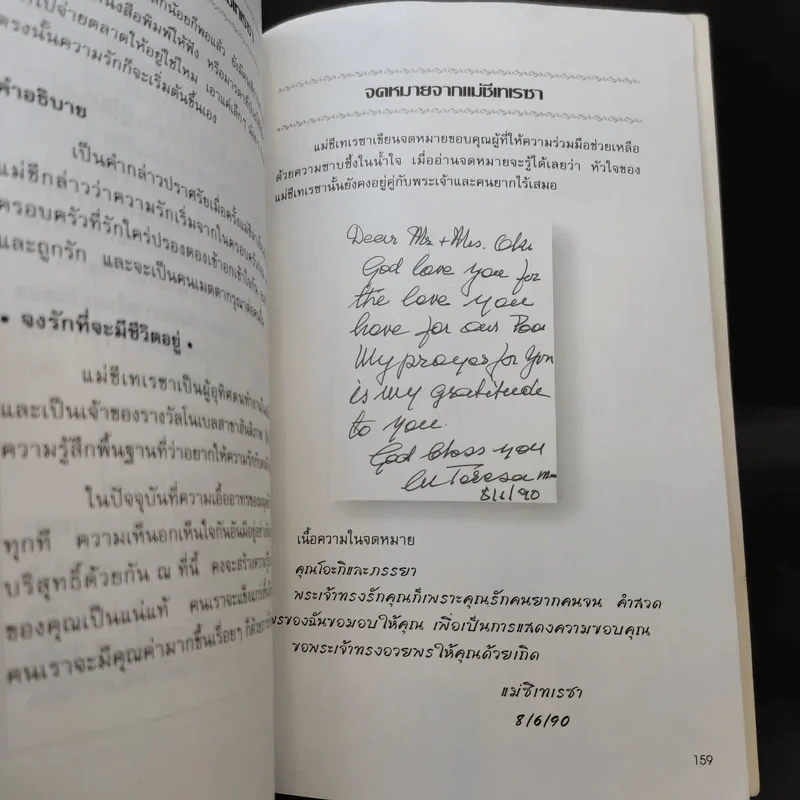 สือพิมพ์ให้ฟัง
ไปจ่ายตลาดให้อยู่ใช่ไหม
ตรงนั้นความรักก็จะเริ่มต้นขึ้นเอง
คำอธิบาย
เป็นคำกล่าวปราศรัยเมื่อครั้งแม่ชี
แม่ชีกล่าวว่าความรักเริ่มจากในครอบครัว
ครอบครัวที่รักใคร่ปรองดองเข้าอกเข้าใจกัน
และถูกรัก และจะเป็นคนเมตตากรุณาต่อคนอื่น
• จงรักที่จะมีชีวิตอยู่ •
แม่ชีเทเรซาเป็นผู้อุทิศตนทำงาน
และเป็นเจ้าของรางวัลโนเบลสาขาสันติภาพ
ความรู้สึกพื้นฐานที่ว่าอยากให้ความรัก
ในปัจจุบันที่ความเอื้ออาทรของมนุษย์
ทุกที ความเห็นอกเห็นใจกันอันมีอยู่อย่าง
บริสุทธิ์ด้วยกัน ณ ที่นี้ คงจะสร้างความ
ของคุณเป็นแน่แท้ คนเราจะแข็งแกร่งขึ้น
คนเราจะมีคุณค่ามากขึ้นเรื่อยๆ ก็ด้วยการ
จดหมายจากแม่ชีเทเรซา
แม่ชีเทเรซาเขียนจดหมายขอบคุณผู้ที่ให้ความร่วมมือช่วยเหลือ
ด้วยความซาบซึ้งในน้ำใจ เมื่ออ่านจดหมายจะรู้ได้เลยว่า หัวใจของ
แม่ชีเทเรซานั้นยังคงอยู่คู่กับพระเจ้าและคนยากไร้เสมอ
Dear Mr. + Mrs. Oki
God love you for
the love you
have for our Poor
My prayer for you
is my gratitude
to you.
God bless you
M Teresa mc
8/6/90
เนื้อความในจดหมาย
คุณโอะกิและภรรยา
พระเจ้าทรงรักคุณก็เพราะคุณรักคนยากคนจน คำสวด
พรของฉันขอมอบให้คุณ เพื่อเป็นการแสดงความขอบคุณ
ขอพระเจ้าทรงอวยพรให้คุณด้วยเถิด
แม่ชีเทเรซา
8/6/90
159